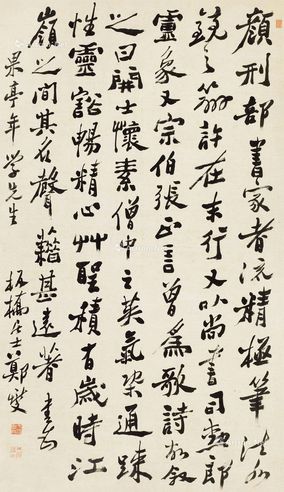 顏刑部書家者流精極筆法水
鏡之辨許在末行又以尚書司勳郎
盧象又宗伯張正言曾爲歌詩故敘
之曰開士懷素僧中之英氣槩通疎
性靈豁暢精心艸聖積有歲時江
嶺之間其名聲籍甚遠著書為
果亭年学先生
板橋居士鄭燮